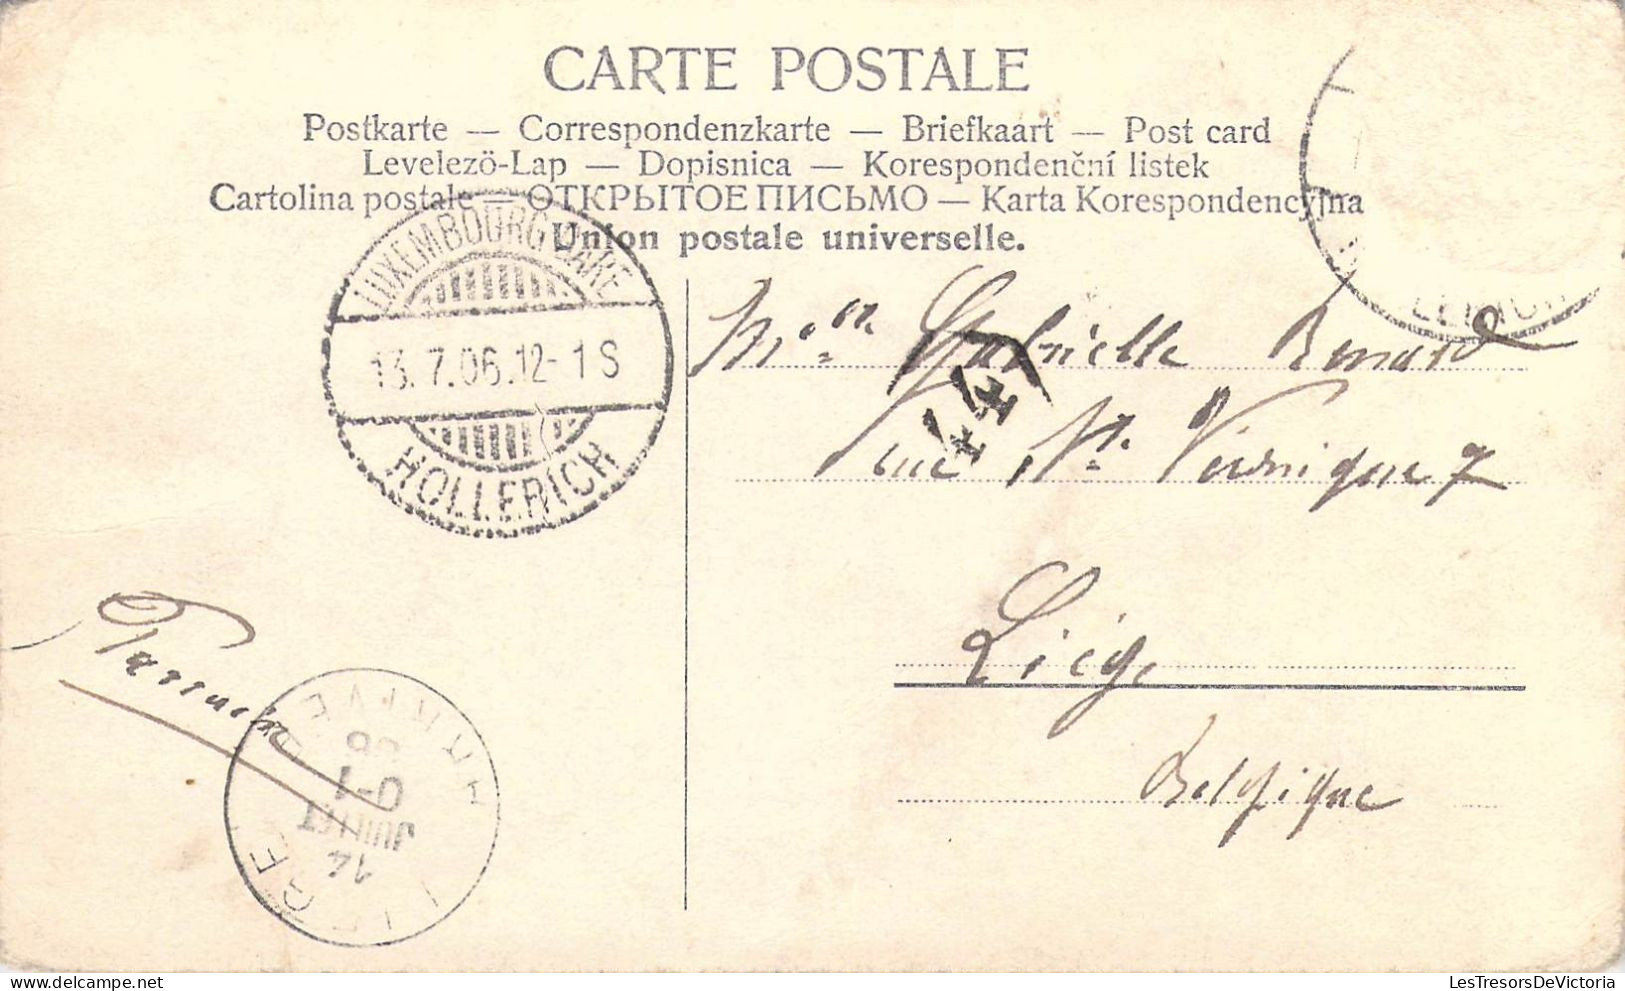 CARTE POSTALE
Postkarte — Correspondenzkarte — Briefkaart — Post card
Levelező-Lap — Dopisnica — Korespondenční listek
Cartolina postale — ОТКРЫТОЕ ПИСЬМО — Karta Korespondencyjna
Union postale universelle.
LUXEMBOURG GARE
13.7.06.12-1S
HOLLERICH
Melle Gabrielle Renard
rue Ste Véronique 7
Liége
Belgique
44
LIEGE DEPART
14
JUIL
0-1
06
LesTresorsDeVictoria